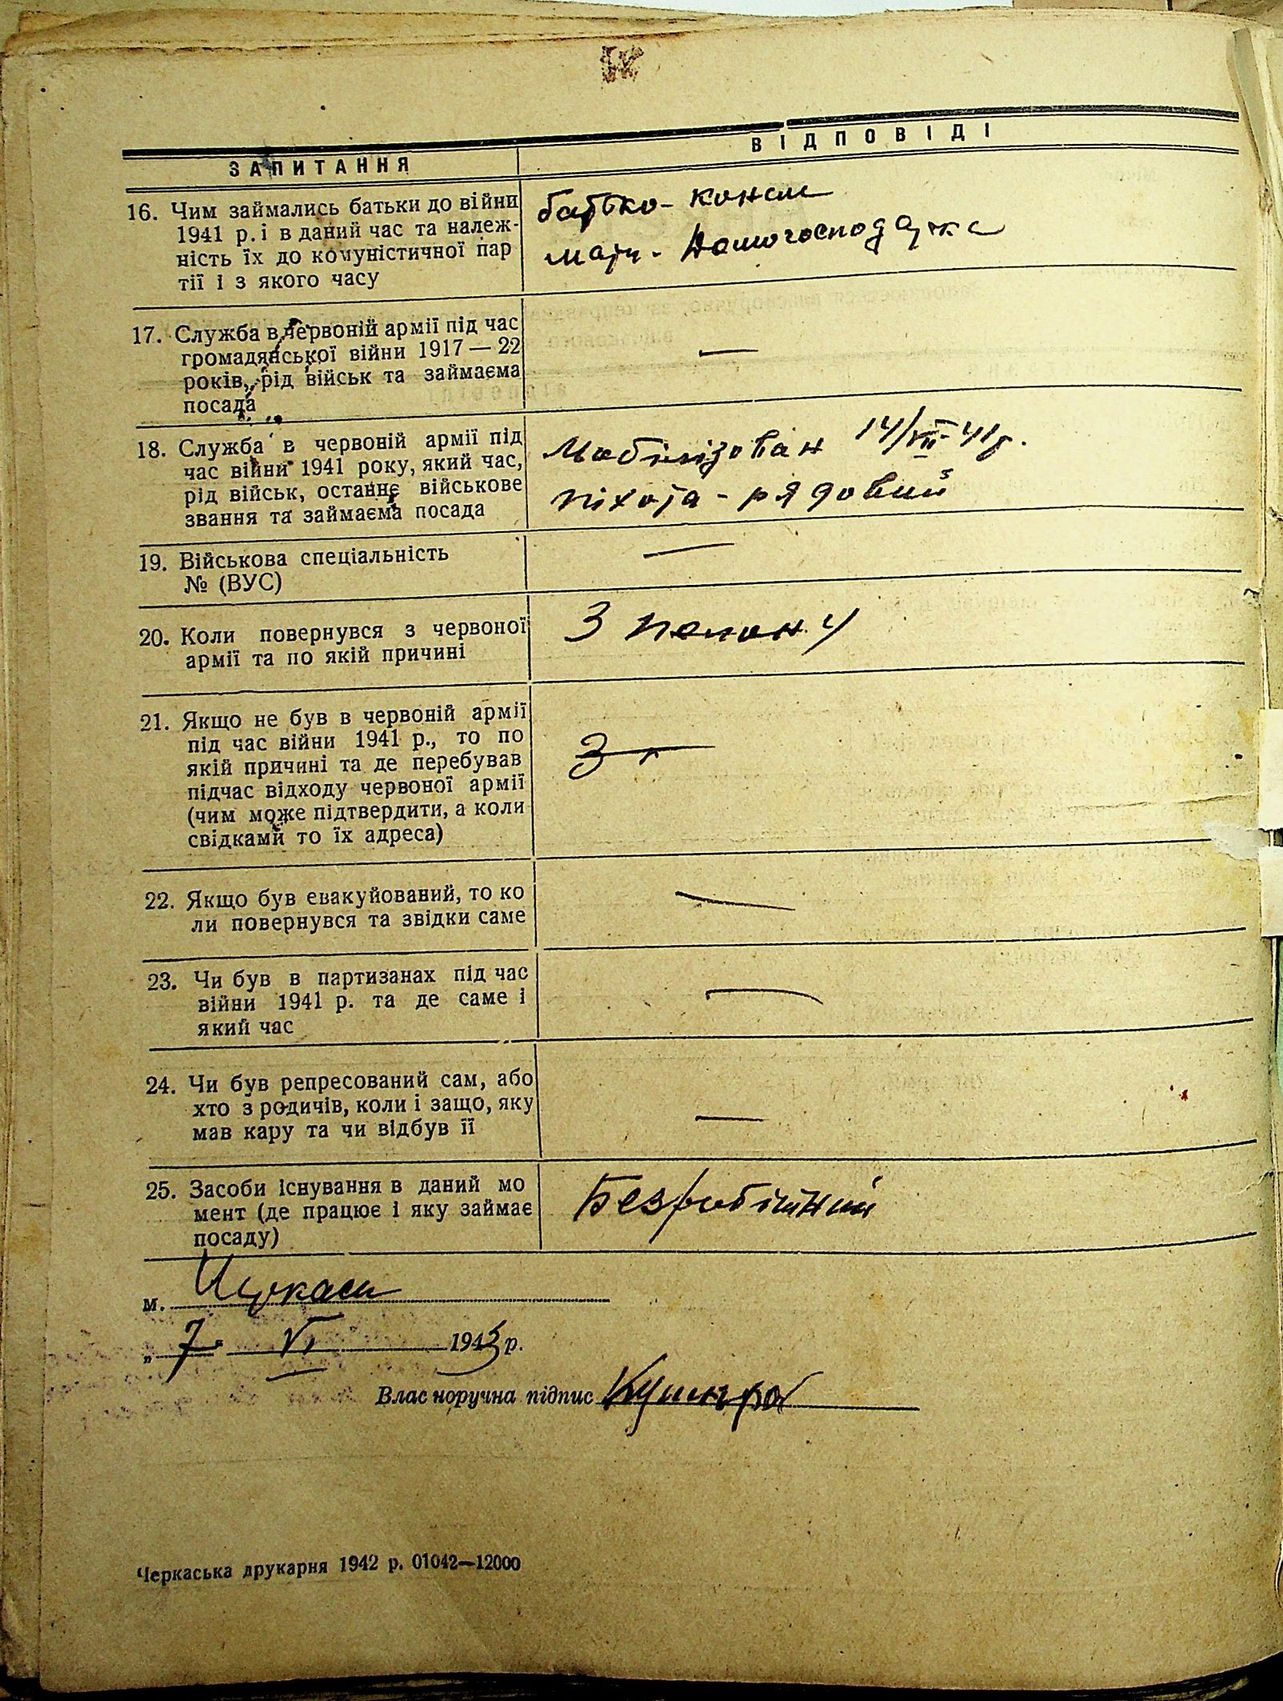 ЗАПИТАННЯ
ВІДПОВІДІ
16. Чим займались батьки до війни
1941 р. і в даний час та належ-
ність їх до комуністичної пар
тії і з якого часу
батько -
мати - Домогосподарка
17. Служба в червоній армії під час
громадянської війни 1917 — 22
років, рід військ та займаєма
посада
—
18. Служба в червоній армії під
час війни 1941 року, який час,
рід військ, останнє військове
звання та займаєма посада
Мобілізован 14/VII-41р.
піхота - рядовий
19. Військова спеціальність
№ (ВУС)
—
20. Коли повернувся з червоної
армії та по якій причині
З полону
21. Якщо не був в червоній армії
під час війни 1941 р., то по
якій причині та де перебував
підчас відходу червоної армії
(чим може підтвердити, а коли
свідками то їх адреса)
22. Якщо був евакуйований, то ко
ли повернувся та звідки саме
—
23. Чи був в партизанах під час
війни 1941 р. та де саме і
який час
—
24. Чи був репресований сам, або
хто з родичів, коли і защо, яку
мав кару та чи відбув її
—
25. Засоби існування в даний мо
мент (де працює і яку займає
посаду)
Безробітний
м. Черкаси
„ 7 VI 1943 р.
Власноручна підпис
Черкаська друкарня 1942 р. 01042—12000